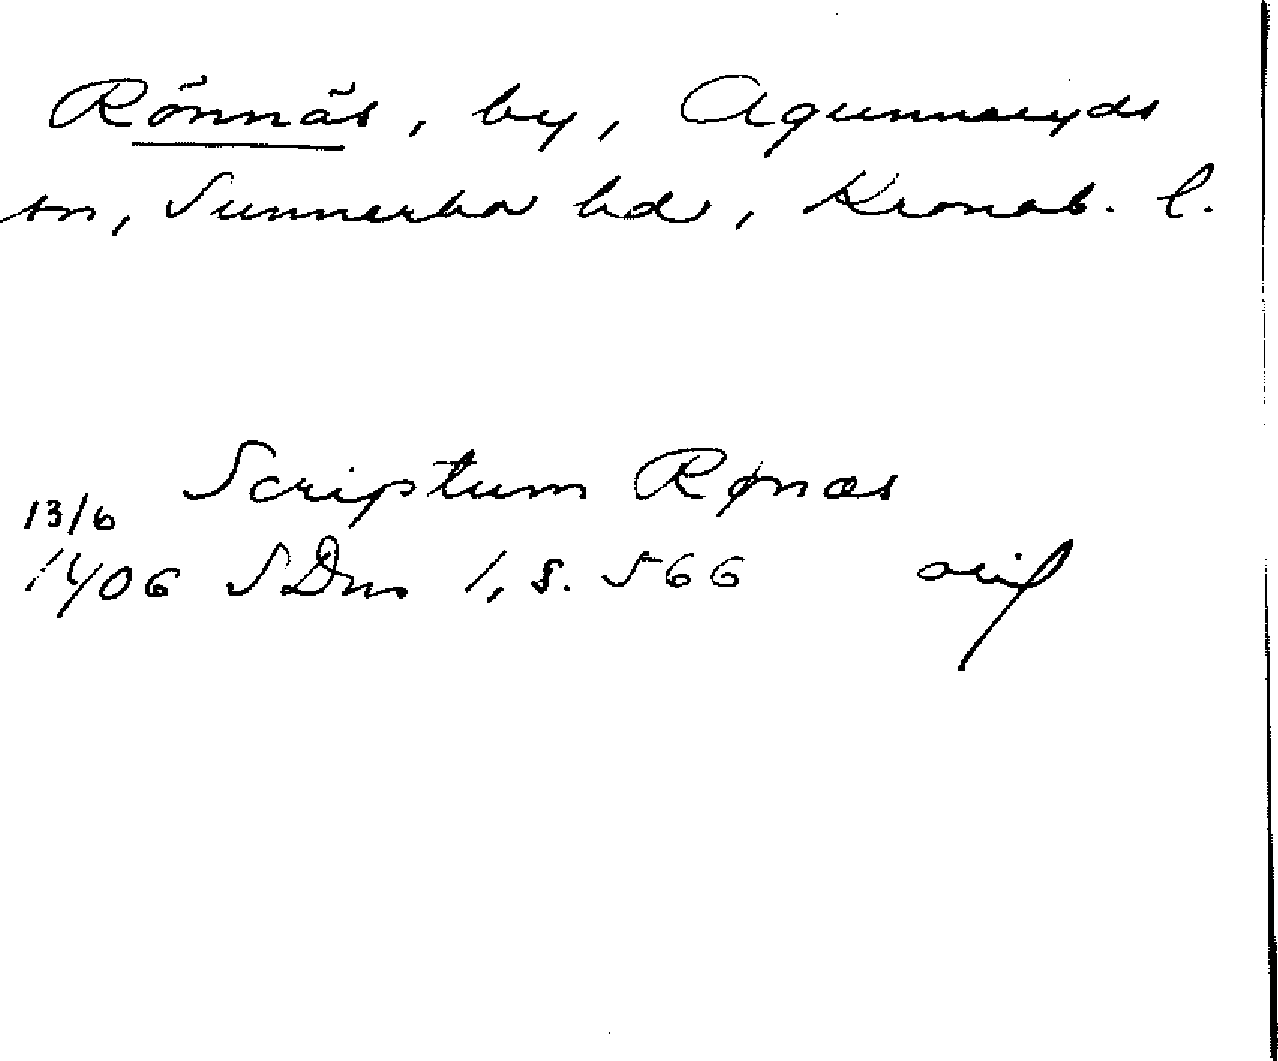 Rönnäs, by, Agunnaryds
sn, Sunnerbo hd, Kronob. l.
Scriptum Rønæs
13/6
1406 SDns 1, s. 566 orig